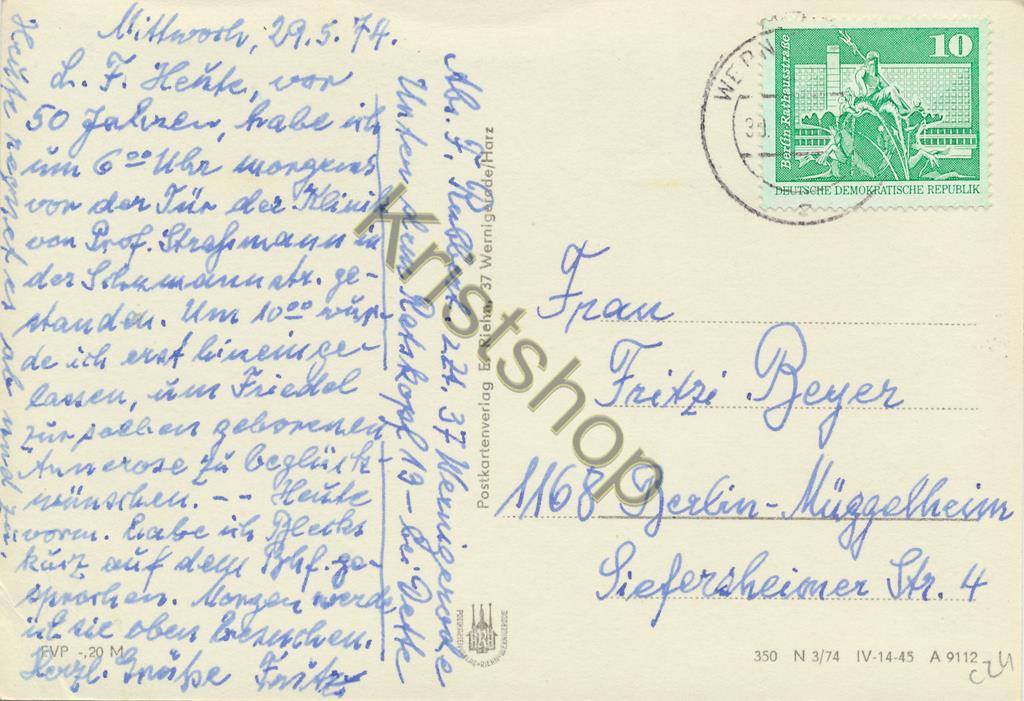 Mittwoch, 29.5.74.
L. F. Heute, vor
50 Jahren, habe ich
um 6⁰⁰ Uhr morgens
vor der Tür der Klinik
von Prof. Straßmann in
der Schumannstr. ge-
standen. Um 10⁰⁰ wur-
de ich erst hineinge-
lassen, um Friedel
zur soeben geborenen
Annerose zu beglück-
wünschen. -- Heute
vorm. habe ich Blecks
kurz auf dem Bhf. ge-
sprochen. Morgen werde
ich sie oben besuchen.
Herzl. Grüße Fritz
Heute regnet es ab und zu.
Abs. F. z.Zt. 37 Wernigerode
Unter dem Ratskopf 19 – bei Dette
EVP -,20 M
Postkartenverlag E. Riehn, 37 Wernigerode/Harz
WERN
10
Berlin-Rathausstraße
DEUTSCHE DEMOKRATISCHE REPUBLIK
Frau
Fritzi Beyer
1168 Berlin-Müggelheim
Siefersheimer Str. 4
350 N 3/74 IV-14-45 A 9112
Kristshop